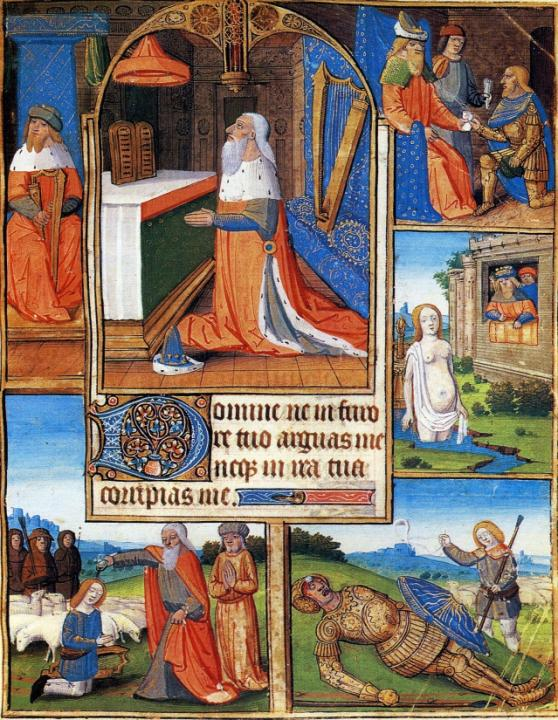 Domine ne in furo
re tuo arguas me
neqz in ira tua
corripias me.